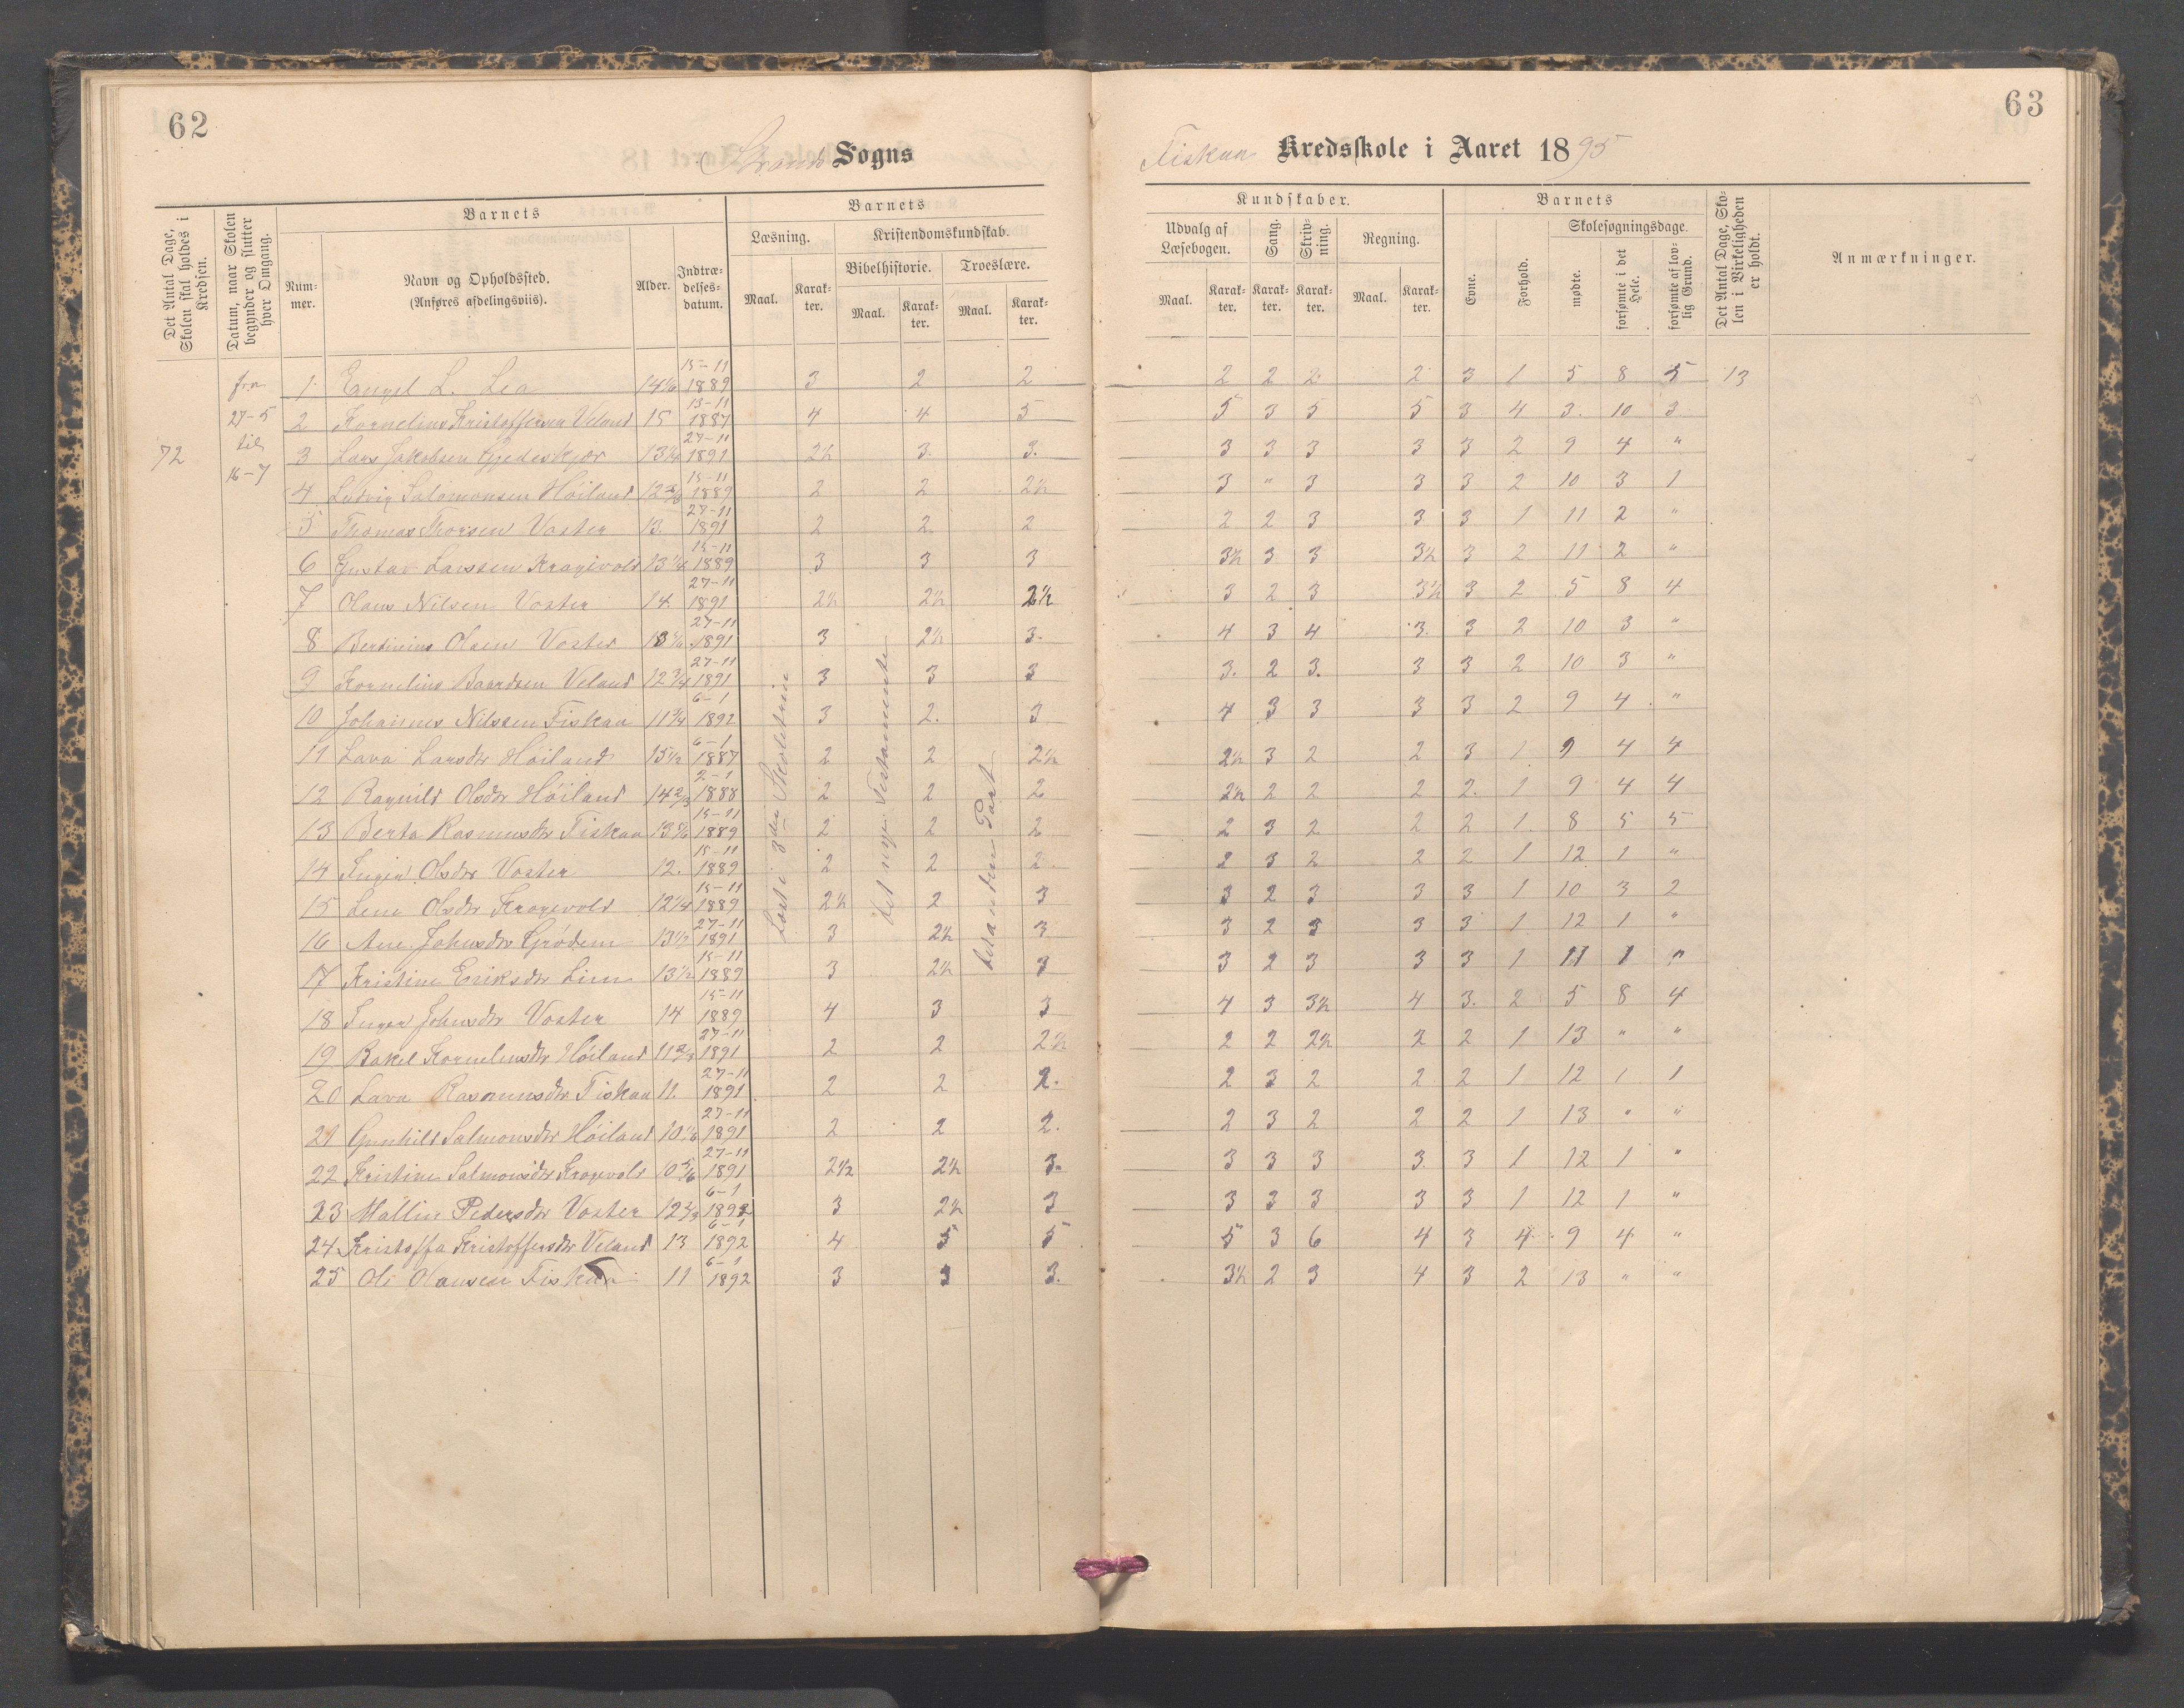 62
Strands Sogns
Det Antal Dage, Skolen skal holdes i Kredsen.
Datum, naar Skolen begynder og slutter hver Omgang.
Barnets
Nummer.
Navn og Opholdssted.
(Anføres afdelingsviis).
Alder.
Indtrædelsesdatum.
Barnets
Læsning.
Kristendomskundskab.
Bibelhistorie.
Troeslære.
Maal. Karakter. Maal. Karakter. Maal. Karakter.
72
fra
27-5
til
16-7
Læst i 3die Skoletrin
det nye Testamente
den anden Part
1. Engel L. Lea 14 1/6 15-11 1889 3 2 2
2 Kornelius Kristoffersen Veland 15 15-11 1887 4 4 5
3 Lars Jakobsen Gjedeskjær 13 1/4 27-11 1891 2½ 3. 3.
4 Ludvig Salomonsen Høiland 12 5/6 15-11 1889 2 2 2½
5 Thomas Thorsen Voster 13. 27-11 1891 2 2 2
6 Gustav Larssen Kragevold 13 1/6 15-11 1889 3 3 3
7 Olaus Nilsen Voster 14 27-11 1891 2½ 2½ 2½
8 Bertinius Olsen Voster 13 27-11 1891 3 2½ 3.
9 Kornelius Baardsen Veland 12 3/4 27-11 1891 3 3 3
10 Johannes Nilssen Fiskaa 11 3/4 6-1 1892 3 2. 3
11 Lava Larsdtr Høiland 15 1/2 6-1 1887 2 2 2½
12 Ragnild Olsdtr Høiland 14 2/3 2-1 1888 2 2 2
13 Berta Rasmusdtr Fiskaa 13 5/6 15-11 1889 2 2 2
14 Inger Olsdtr Voster 12. 15-11 1889 2 2 2
15 Lene Olsdtr Kragevold 12 1/4 15-11 1889 2½ 2 3
16 Ane Johnsdtr Grødem 13 1/2 27-11 1891 3 2½ 3
17 Kristine Eriksdtr Lien 13 1/2 15-11 1889 3 2½ 3
18 Inger Johnsdtr Voster 14 15-11 1889 4 3 3
19 Rakel Korneliusdtr Høiland 11 2/3 27-11 1891 2 2 2½
20 Lava Rasmusdtr Fiskaa 11. 27-11 1891 2 2 2.
21 Gunhild Salmonsdtr Høiland 10 1/6 27-11 1891 2 2 2.
22 Kristine Salmonsdtr Kragevold 10 5/6 27-11 1891 2½ 2½ 3.
23 Mallin Pedersdtr Voster 12 2/3 6-1 1892 3 2½ 3
24 Kristoffa Kristoffersdtr Veland 13 6-1 1892 4 5 5
25 Ole Olausen Fiskaa 11 6-1 1892 3 3 3.
63
Fiskaa Kredsskole i Aaret 1895
Kundskaber.
Udvalg af Læsebogen.
Sang.
Skrivning.
Regning.
Maal. Karakter. Karakter. Karakter. Maal. Karakter.
Barnets
Evne.
Forhold.
Skolesøgningsdage.
mødte.
forsømte i det Hele.
forsømte af lovlig Grund.
Det Antal Dage, Skolen i Virkeligheden er holdt.
Anmærkninger.
2 2 2 2 3 1 5 8 5 13
5 3 5 5 3 4 3. 10 3
3 3 3 3 3 2 9 4 "
3 " 3 3 3 2 10 3 1
2 2 3 3 3 1 11 2 "
3½ 3 3 3½ 3 2 11 2 "
3 2 3 3½ 3 2 5 8 4
4 3 4 3. 3 2 10 3 "
3. 2 3. 3 3 2 10 3 "
4 3 3 3 3 2 9 4 "
2½ 3 2 2 3 1 9 4 4
2½ 2 2 2 2. 1 9 4 4
2 3 2 2 2 1 8 5 5
2 3 2 2 2 1 12 1 "
3 2 3 3 3 1 10 3 2
3 2 3 3 3 1 12 1 "
3 2 3 3 3 1 11 1 "
4 3 3½ 4 3. 2 5 8 4
2 2 2½ 2 2 1 13 " "
2 3 2 2 2 1 12 1 1
2 3 2 2 2 1 13 " "
3 3 3 3 3 1 12 1 "
3 3 3 3 3 1 12 1 "
5 3 6 4 3 4 9 4 "
3½ 2 3 4 3 2 13 " "